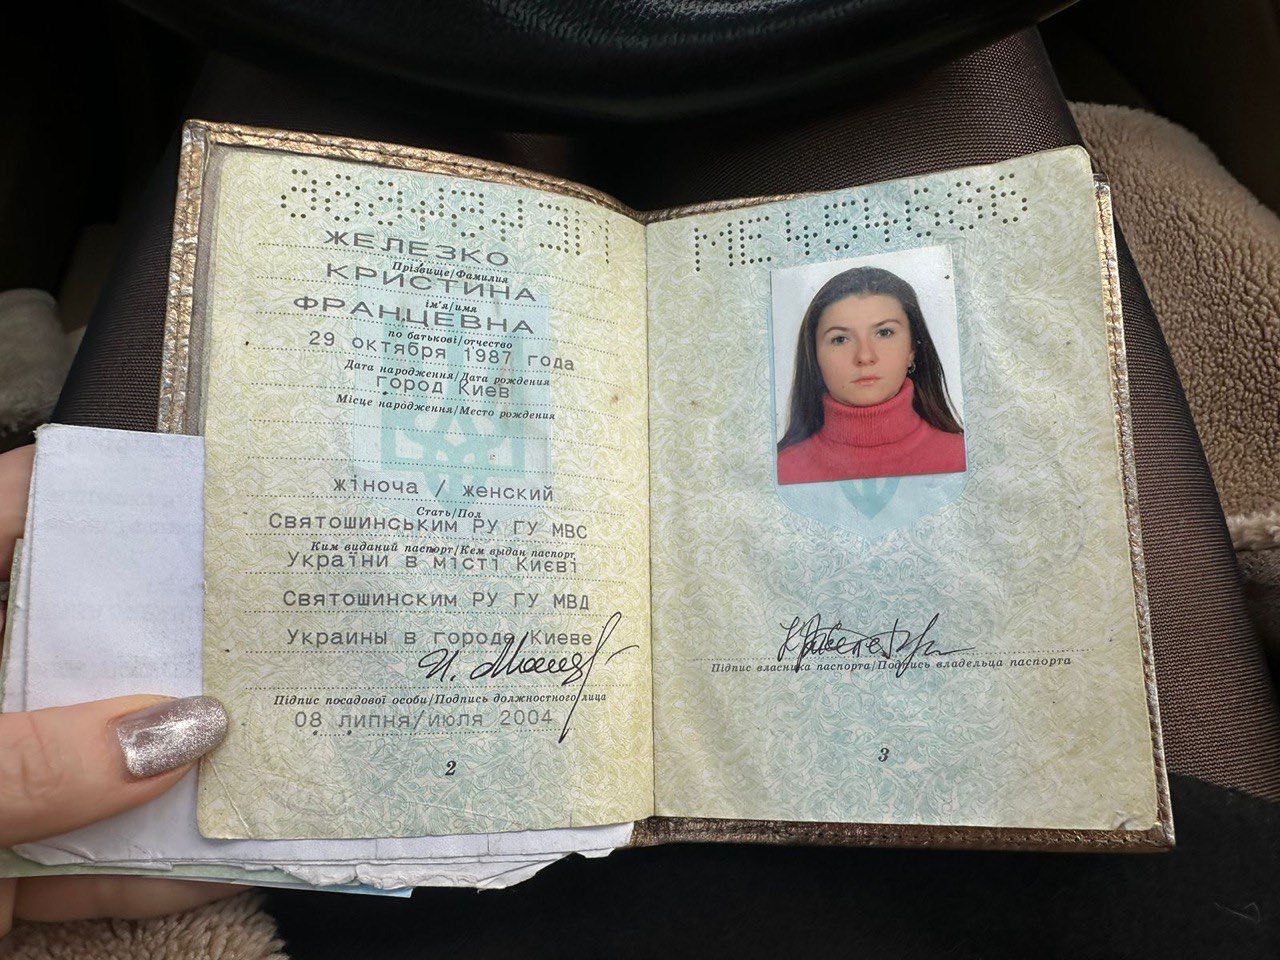 ЖЕЛЕЗКО
Прізвище/Фамилия
КРИСТИНА
ім'я/имя
ФРАНЦЕВНА
по батькові/отчество
29 октября 1987 года
Дата народження/Дата рождения
город Киев
Місце народження/Место рождения
жіноча / женский
Стать/Пол
Святошинським РУ ГУ МВС
Ким виданий паспорт/Кем выдан паспорт
України в місті Києві
Святошинским РУ ГУ МВД
Украины в городе Киеве
Підпис посадової особи/Подпись должностного лица
08 липня/июля 2004
2
МЕ
Підпис власника паспорта/Подпись владельца паспорта
3